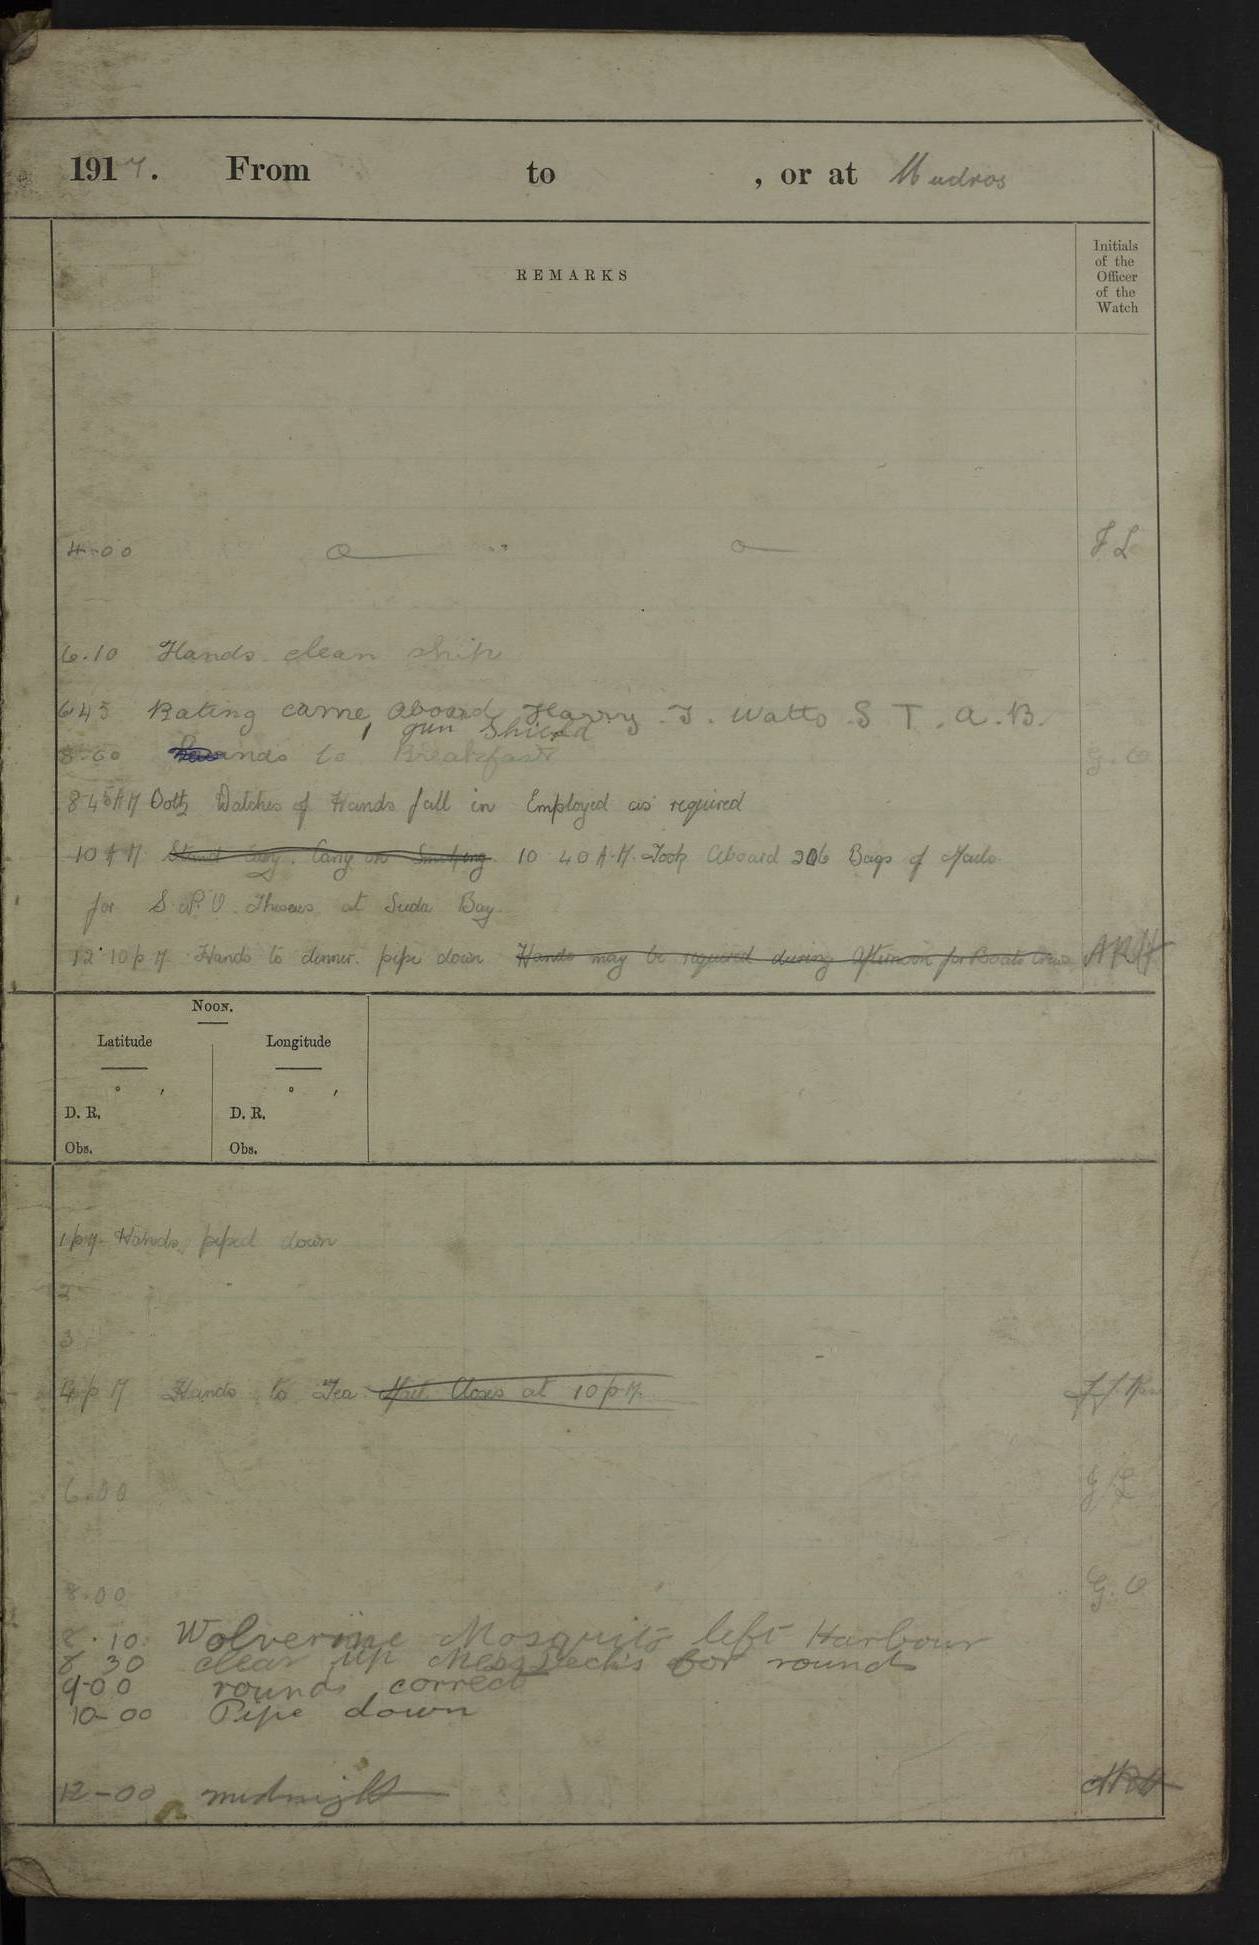 1917. From to , or at Mudros
REMARKS
Initials
of the
Officer
of the
Watch
4-00 F L
6.10 Hands clean ship
645 Rating came aboard Harry J. Watts S T. A.B.
1 gun Shield
8-00 Hands to Breakfast G. O
8 45 AM Both Watches of Hands fall in Employed as required
10 AM Stand Easy. Carry on Smoking. 10 40 A.M. Took Aboard 206 Bags of Mails
for S.N.O. Theseus at Suda Bay
12 10 p M. Hands to dinner. pipe down Hands may be required during Afternoon for Boats Crews ARH
Noon.
Latitude Longitude
° ′ ° ′
D. R. D. R.
Obs. Obs.
1 pM. Hands piped down
2
3
4 p M Hands to Tea. Mail Closes at 10 p M.
6.00
8.00 G. O
8.10 Wolverine Mosquito left Harbour
8 30 clear up Mess Decks for rounds
9-00 rounds correct
10-00 Pipe down
12-00 midnight ARH